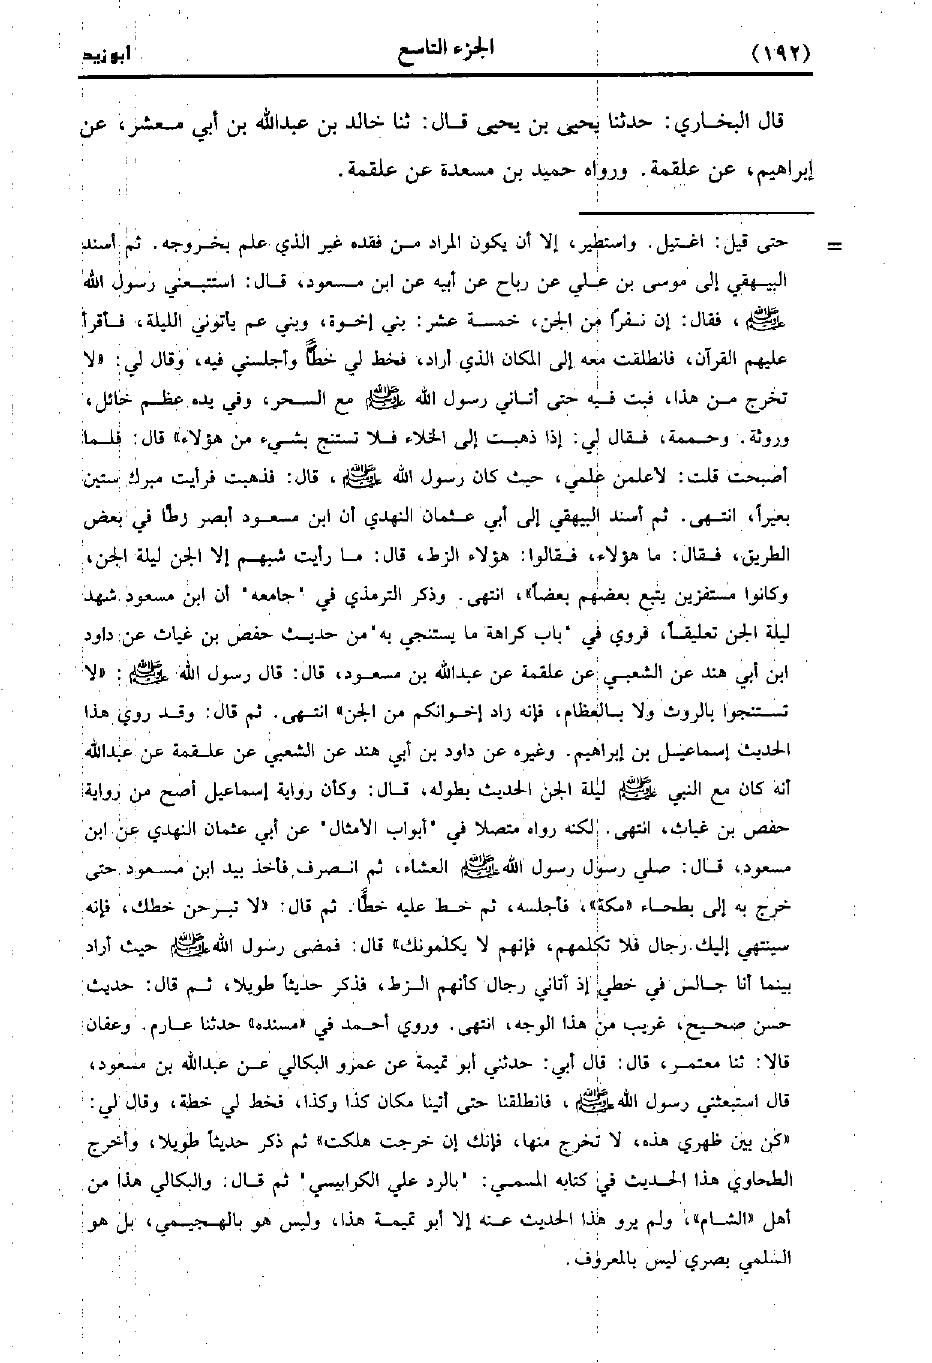 (١٩٢) الجزء التاسع أبو زيد
قال البخاري: حدثنا يحيى بن يحيى قال: ثنا خالد بن عبدالله بن أبي معشر، عن
إبراهيم، عن علقمة. ورواه حميد بن مسعدة عن علقمة.
= حتى قيل: اغتيل. واستطير، إلا أن يكون المراد من فقده غير الذي علم بخروجه. ثم أسند
البيهقي إلى موسى بن علي عن رباح عن أبيه عن ابن مسعود، قال: استتبعني رسول الله
ﷺ، فقال: إن نفرًا من الجن، خمسة عشر: بني إخوة، وبني عم يأتوني الليلة، فأقرأ
عليهم القرآن، فانطلقت معه إلى المكان الذي أراد، فخط لي خطًّا وأجلسني فيه، وقال لي: «لا
تخرج من هذا، فبت فيه حتى أتاني رسول الله ﷺ مع السحر، وفي يده عظم حائل،
وروثة. وحممة، فقال لي: إذا ذهبت إلى الخلاء فلا تستنج بشيء من هؤلاء» قال: فلما
أصبحت قلت: لأعلمن علمي، حيث كان رسول الله ﷺ، قال: فذهبت فرأيت مبرك ستين
بعيراً، انتهى. ثم أسند البيهقي إلى أبي عثمان النهدي أن ابن مسعود أبصر زطًّا في بعض
الطريق، فقال: ما هؤلاء، فقالوا: هؤلاء الزط، قال: ما رأيت شبههم إلا الجن ليلة الجن،
وكانوا مستفزين يتبع بعضهم بعضاً»، انتهى. وذكر الترمذي في "جامعه" أن ابن مسعود شهد
ليلة الجن تعليقاً، فروي في "باب كراهة ما يستنجي به" من حديث حفص بن غياث عن داود
ابن أبي هند عن الشعبي عن علقمة عن عبدالله بن مسعود، قال: قال رسول الله ﷺ: «لا
تستنجوا بالروث ولا بالعظام، فإنه زاد إخوانكم من الجن» انتهى. ثم قال: وقد روي هذا
الحديث إسماعيل بن إبراهيم. وغيره عن داود بن أبي هند عن الشعبي عن علقمة عن عبدالله
أنه كان مع النبي ﷺ ليلة الجن الحديث بطوله، قال: وكأن رواية إسماعيل أصح من رواية
حفص بن غياث، انتهى. لكنه رواه متصلا في "أبواب الأمثال" عن أبي عثمان النهدي عن ابن
مسعود، قال: صلي رسول رسول الله ﷺ العشاء، ثم انصرف فأخذ بيد ابن مسعود حتى
خرج به إلى بطحاء «مكة»، فأجلسه، ثم خط عليه خطًّا. ثم قال: «لا تبرحن خطك، فإنه
سينتهي إليك رجال فلا تكلمهم، فإنهم لا يكلمونك» قال: فمضى رسول الله ﷺ حيث أراد
بينما أنا جالس في خطي إذ أتاني رجال كأنهم الزط، فذكر حديثاً طويلا، ثم قال: حديث
حسن صحيح، غريب من هذا الوجه، انتهى. وروي أحمد في «مسنده» حدثنا عارم. وعفان
قالا: ثنا معتمر، قال: قال أبي: حدثني أبو تميمة عن عمرو البكالي عن عبدالله بن مسعود،
قال استبعثني رسول الله ﷺ، فانطلقنا حتى أتينا مكان كذا وكذا، فخط لي خطة، وقال لي:
«كن بين ظهري هذه، لا تخرج منها، فإنك إن خرجت هلكت» ثم ذكر حديثاً طويلا، وأخرج
الطحاوي هذا الحديث في كتابه المسمي: "بالرد علي الكرابيسي" ثم قال: والبكالي هذا من
أهل «الشام»، ولم يرو هذا الحديث عنه إلا أبو تميمة هذا، وليس هو بالهجيمي، بل هو
السلمي بصري ليس بالمعروف.